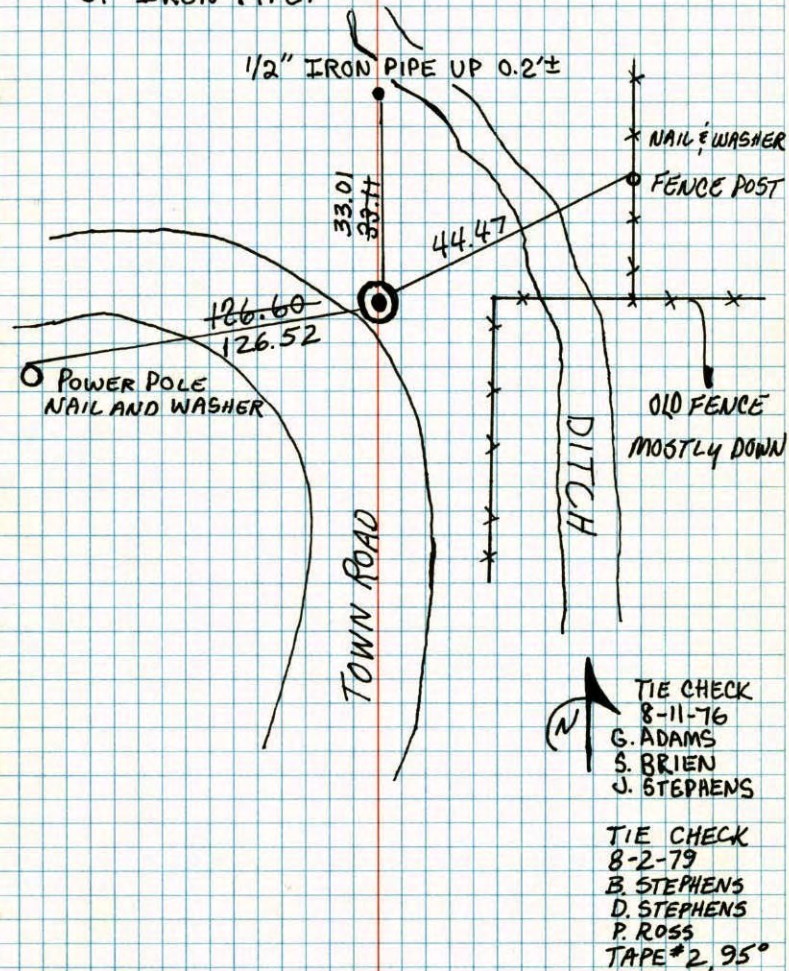 OF IRON PIPE.
1/2" IRON PIPE UP 0.2'±
NAIL & WASHER
FENCE POST
33.01
33.11
44.47
126.60
126.52
POWER POLE
NAIL AND WASHER
OLD FENCE
MOSTLY DOWN
DITCH
TOWN ROAD
N
TIE CHECK
8-11-76
G. ADAMS
S. BRIEN
J. STEPHENS
TIE CHECK
8-2-79
B. STEPHENS
D. STEPHENS
P. ROSS
TAPE #2, 95°